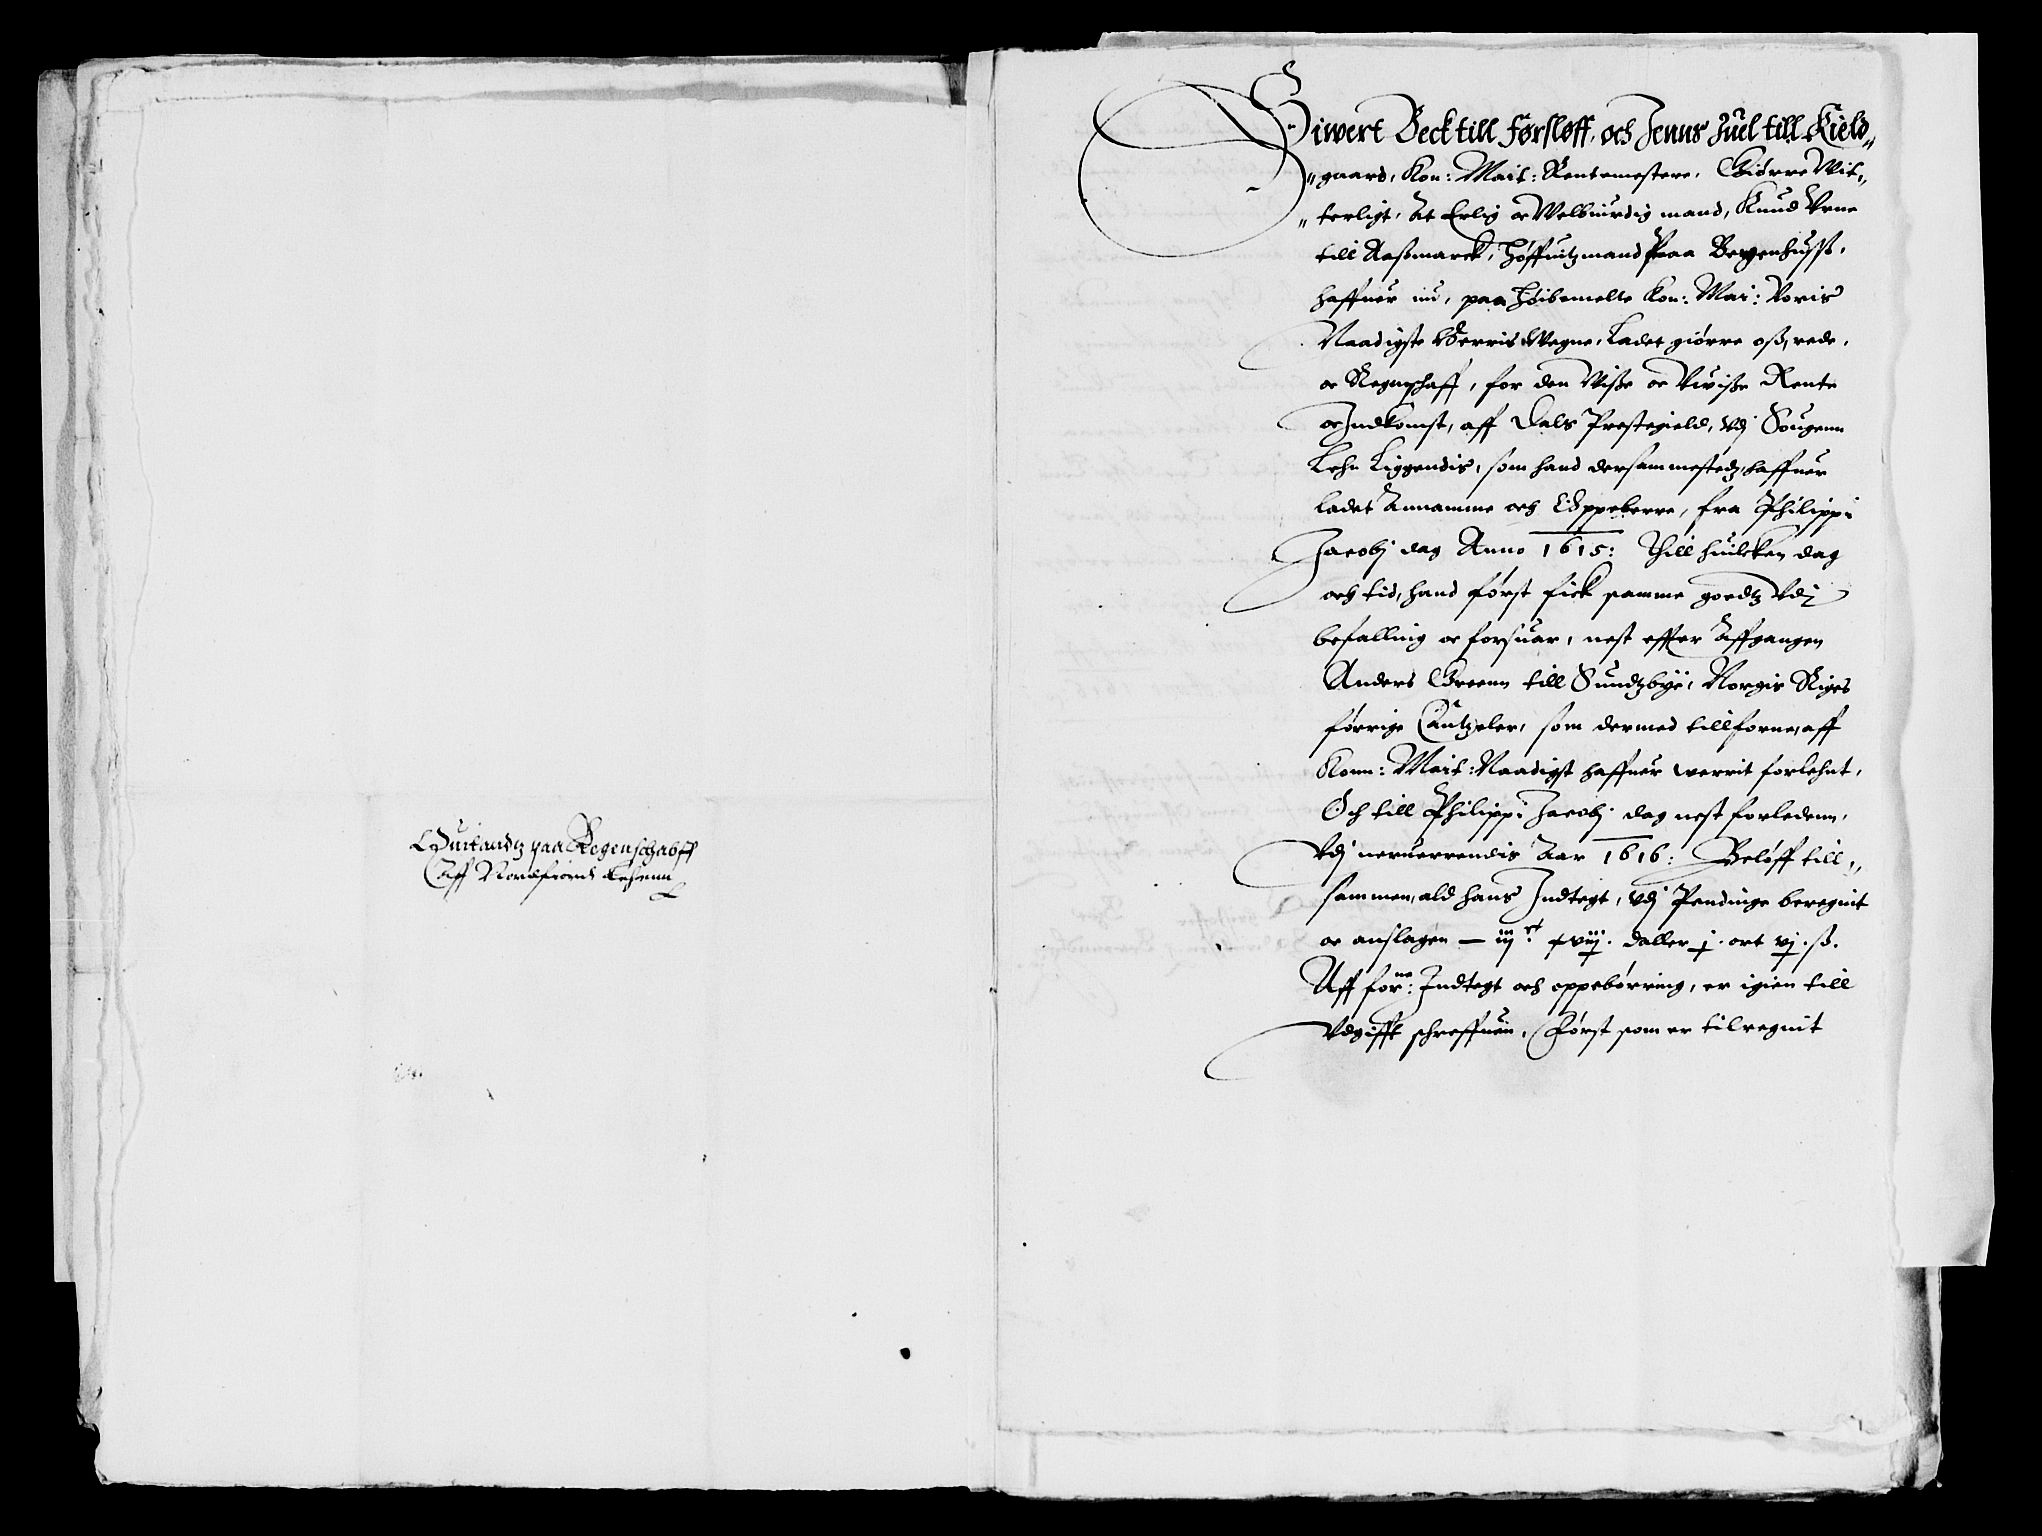 Quitandz paa Regenschabff
Aff Nordfiord Lehenn
Siwert Beck till Førsløff, och Jenns Juel till Kield„
„gaard, Kon: Mait: Rentemestere, Giørre Wit„
„terligt, At Erlig oc Welbiurdig mand, Knud Vrne
till Aaßmarck, Høffuitzmand Paa Bergenhuss,
haffuer nu, paa Høibemelte Kon: Mai: Voris
Naadigste Herris Wegne, Ladet giørre oß, rede,
oc Regnschaff, for den Visse oc Vuisse Rente
oc Indkomst, aff Dals Prestegield, vdj Sougenn
Lehn Liggendis, som hand dersammestedz haffuer
ladet Annamme och Oppeberre, fra Philippi
Jacobj dag Anno 1615: Thill huilcken dag
och tid, hand først fick samme goedtz vdj
befalling oc forsuar, nest effter Affgangen
Anders Greenn till Sundtzbye, Norgis Riges
førrige Cantzeler, som dermed tillforne, aff
Konn: Mait: Naadigst haffuer werrit forlehnt,
Och till Philippi Jacobj dag nest forledenn,
vdj neruerrendis Aar 1616: Beløff till„
sammen, ald hans Indtegt, vdj Pendinge beregnit
oc anslagen — iijc xviij daller j ort vj ß.
Aff forne: Indtegt och oppebørring, er igien till
Vdgifft schreffuen, Først som er tilregnit